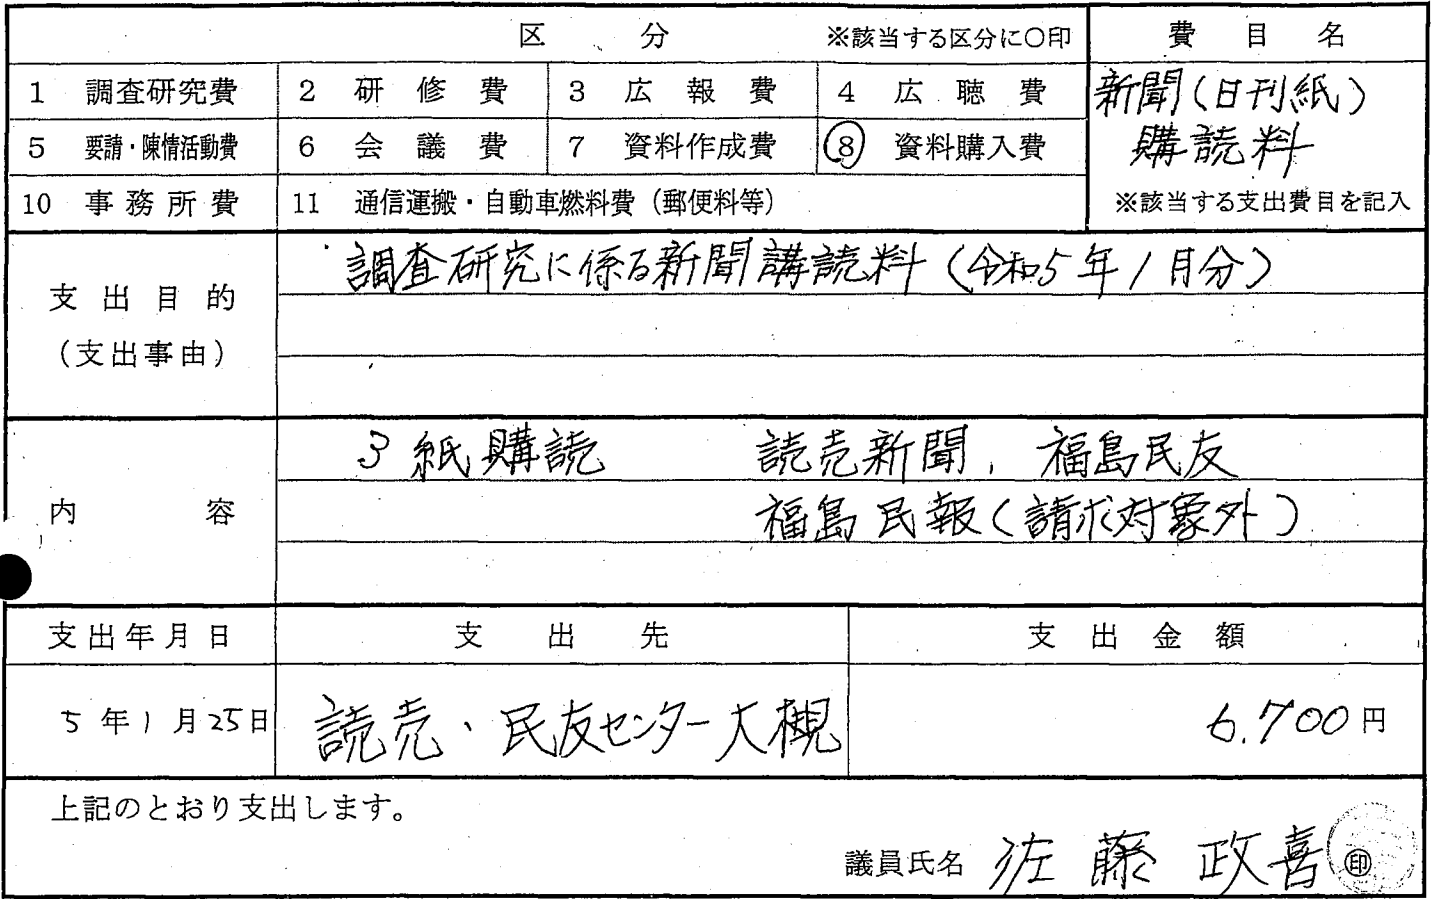 区　分　※該当する区分に○印　費　目　名
1　調査研究費　2　研　修　費　3　広　報　費　4　広　聴　費　新聞(日刊紙)
5　要請・陳情活動費　6　会　議　費　7　資料作成費　⑧　資料購入費　購読料
10　事務所費　11　通信運搬・自動車燃料費（郵便料等）　※該当する支出費目を記入
支出目的
（支出事由）
調査研究に係る新聞講読料（令和5年1月分）
内　容
3紙購読　読売新聞、福島民友
福島民報（請求対象外）
支出年月日　支　出　先　支　出　金　額
5年1月25日　読売、民友センター大槻　6.700円
上記のとおり支出します。
議員氏名　佐藤　政喜　㊞